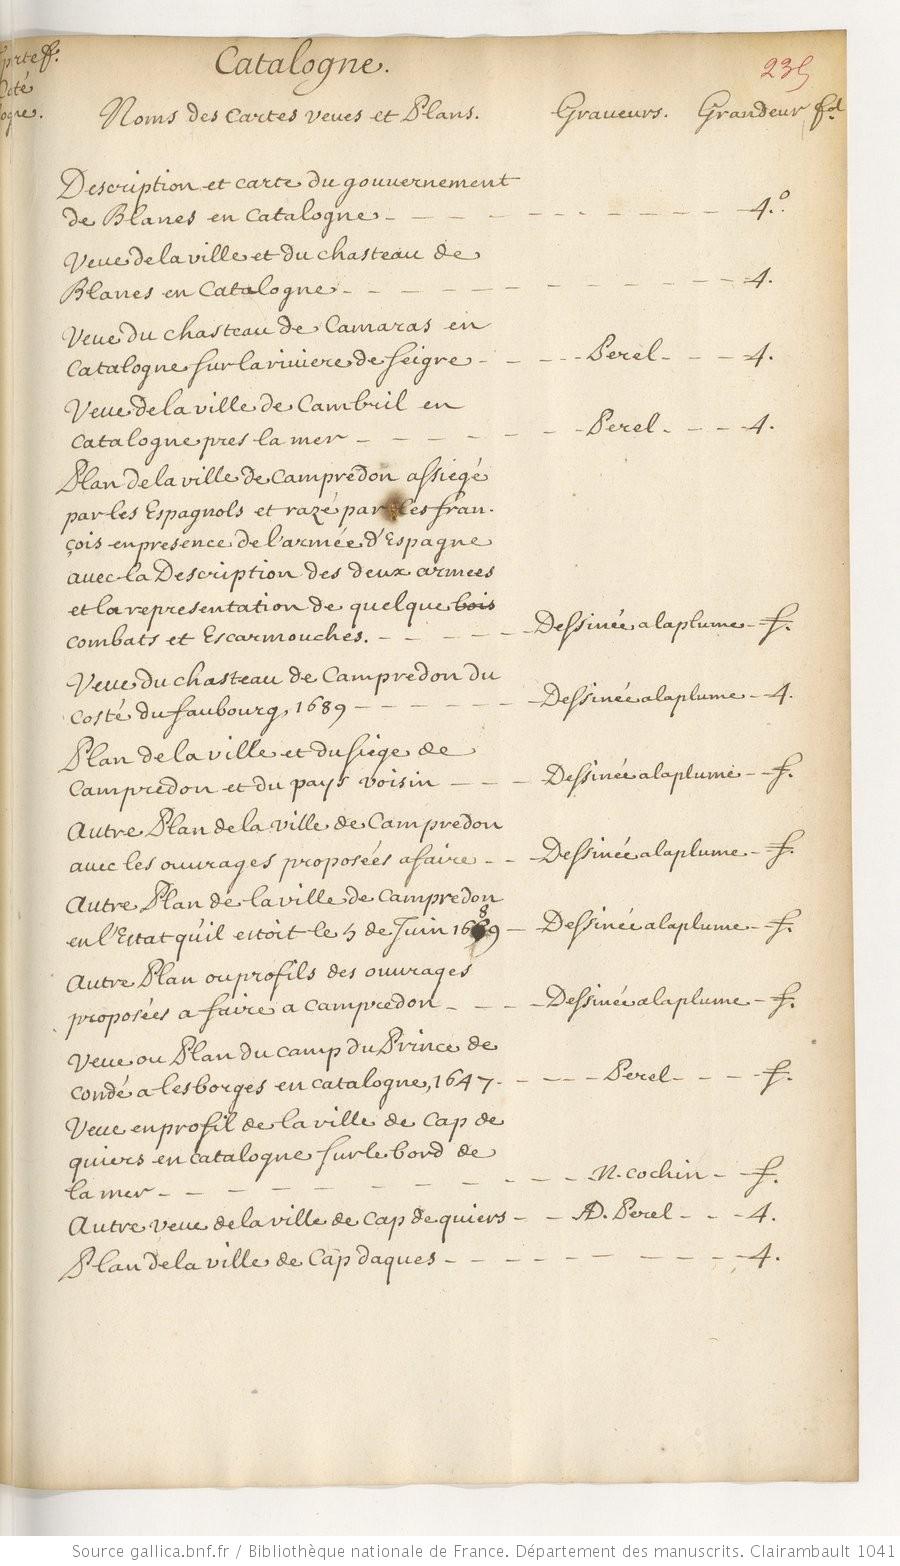 Catalogne.
235
Noms des Cartes veues et Plans. Graveurs. Grandeur fol
Description et carte du gouvernement
de Blanes en Catalogne - - - - 4.º
Veue de la ville et du chasteau de
Blanes en Catalogne - - - - 4.
Veue du chasteau de Camaras en
Catalogne sur la riviere de seigre - - - - Perel - - - 4.
Veue de la ville de Cambril en
Catalogne pres la mer - - - - Perel - - - 4.
Plan de la ville de Campredon assiegé
par les Espagnols et razé par les fran-
çois en presence de l'armée d'Espagne
avec la Description des deux armees
et la representation de quelque bois
combats et Escarmouches. - - - - Dessinée a la plume - f.
Veue du chasteau de Campredon du
costé du faubourg, 1689 - - - - Dessinée a la plume - 4.
Plan de la ville et du siege de
Campredon et du pays voisin - - - Dessinée a la plume - f.
Autre Plan de la ville de Campredon
avec les ouvrages proposées a faire - - Dessinée a la plume - f.
Autre Plan de la ville de Campredon
en l'Estat qu'il estoit le 5 de Juin 1689 - Dessinée a la plume - f.
Autre Plan ou profils des ouvrages
proposées a faire a Campredon - - - Dessinée a la plume - f.
Veue ou Plan du camp du Prince de
Condé a lesborges en catalogne, 1647 - - - - Perel - - - f.
Veue en profil de la ville de Cap de
quiers en Catalogne sur le bord de
la mer - - - - N. Cochin - f.
Autre veue de la ville de Cap de quiers - - AD. Perel - - - 4.
Plan de la ville de Cap daques - - - - 4.
Source gallica.bnf.fr / Bibliothèque nationale de France. Département des manuscrits. Clairambault 1041